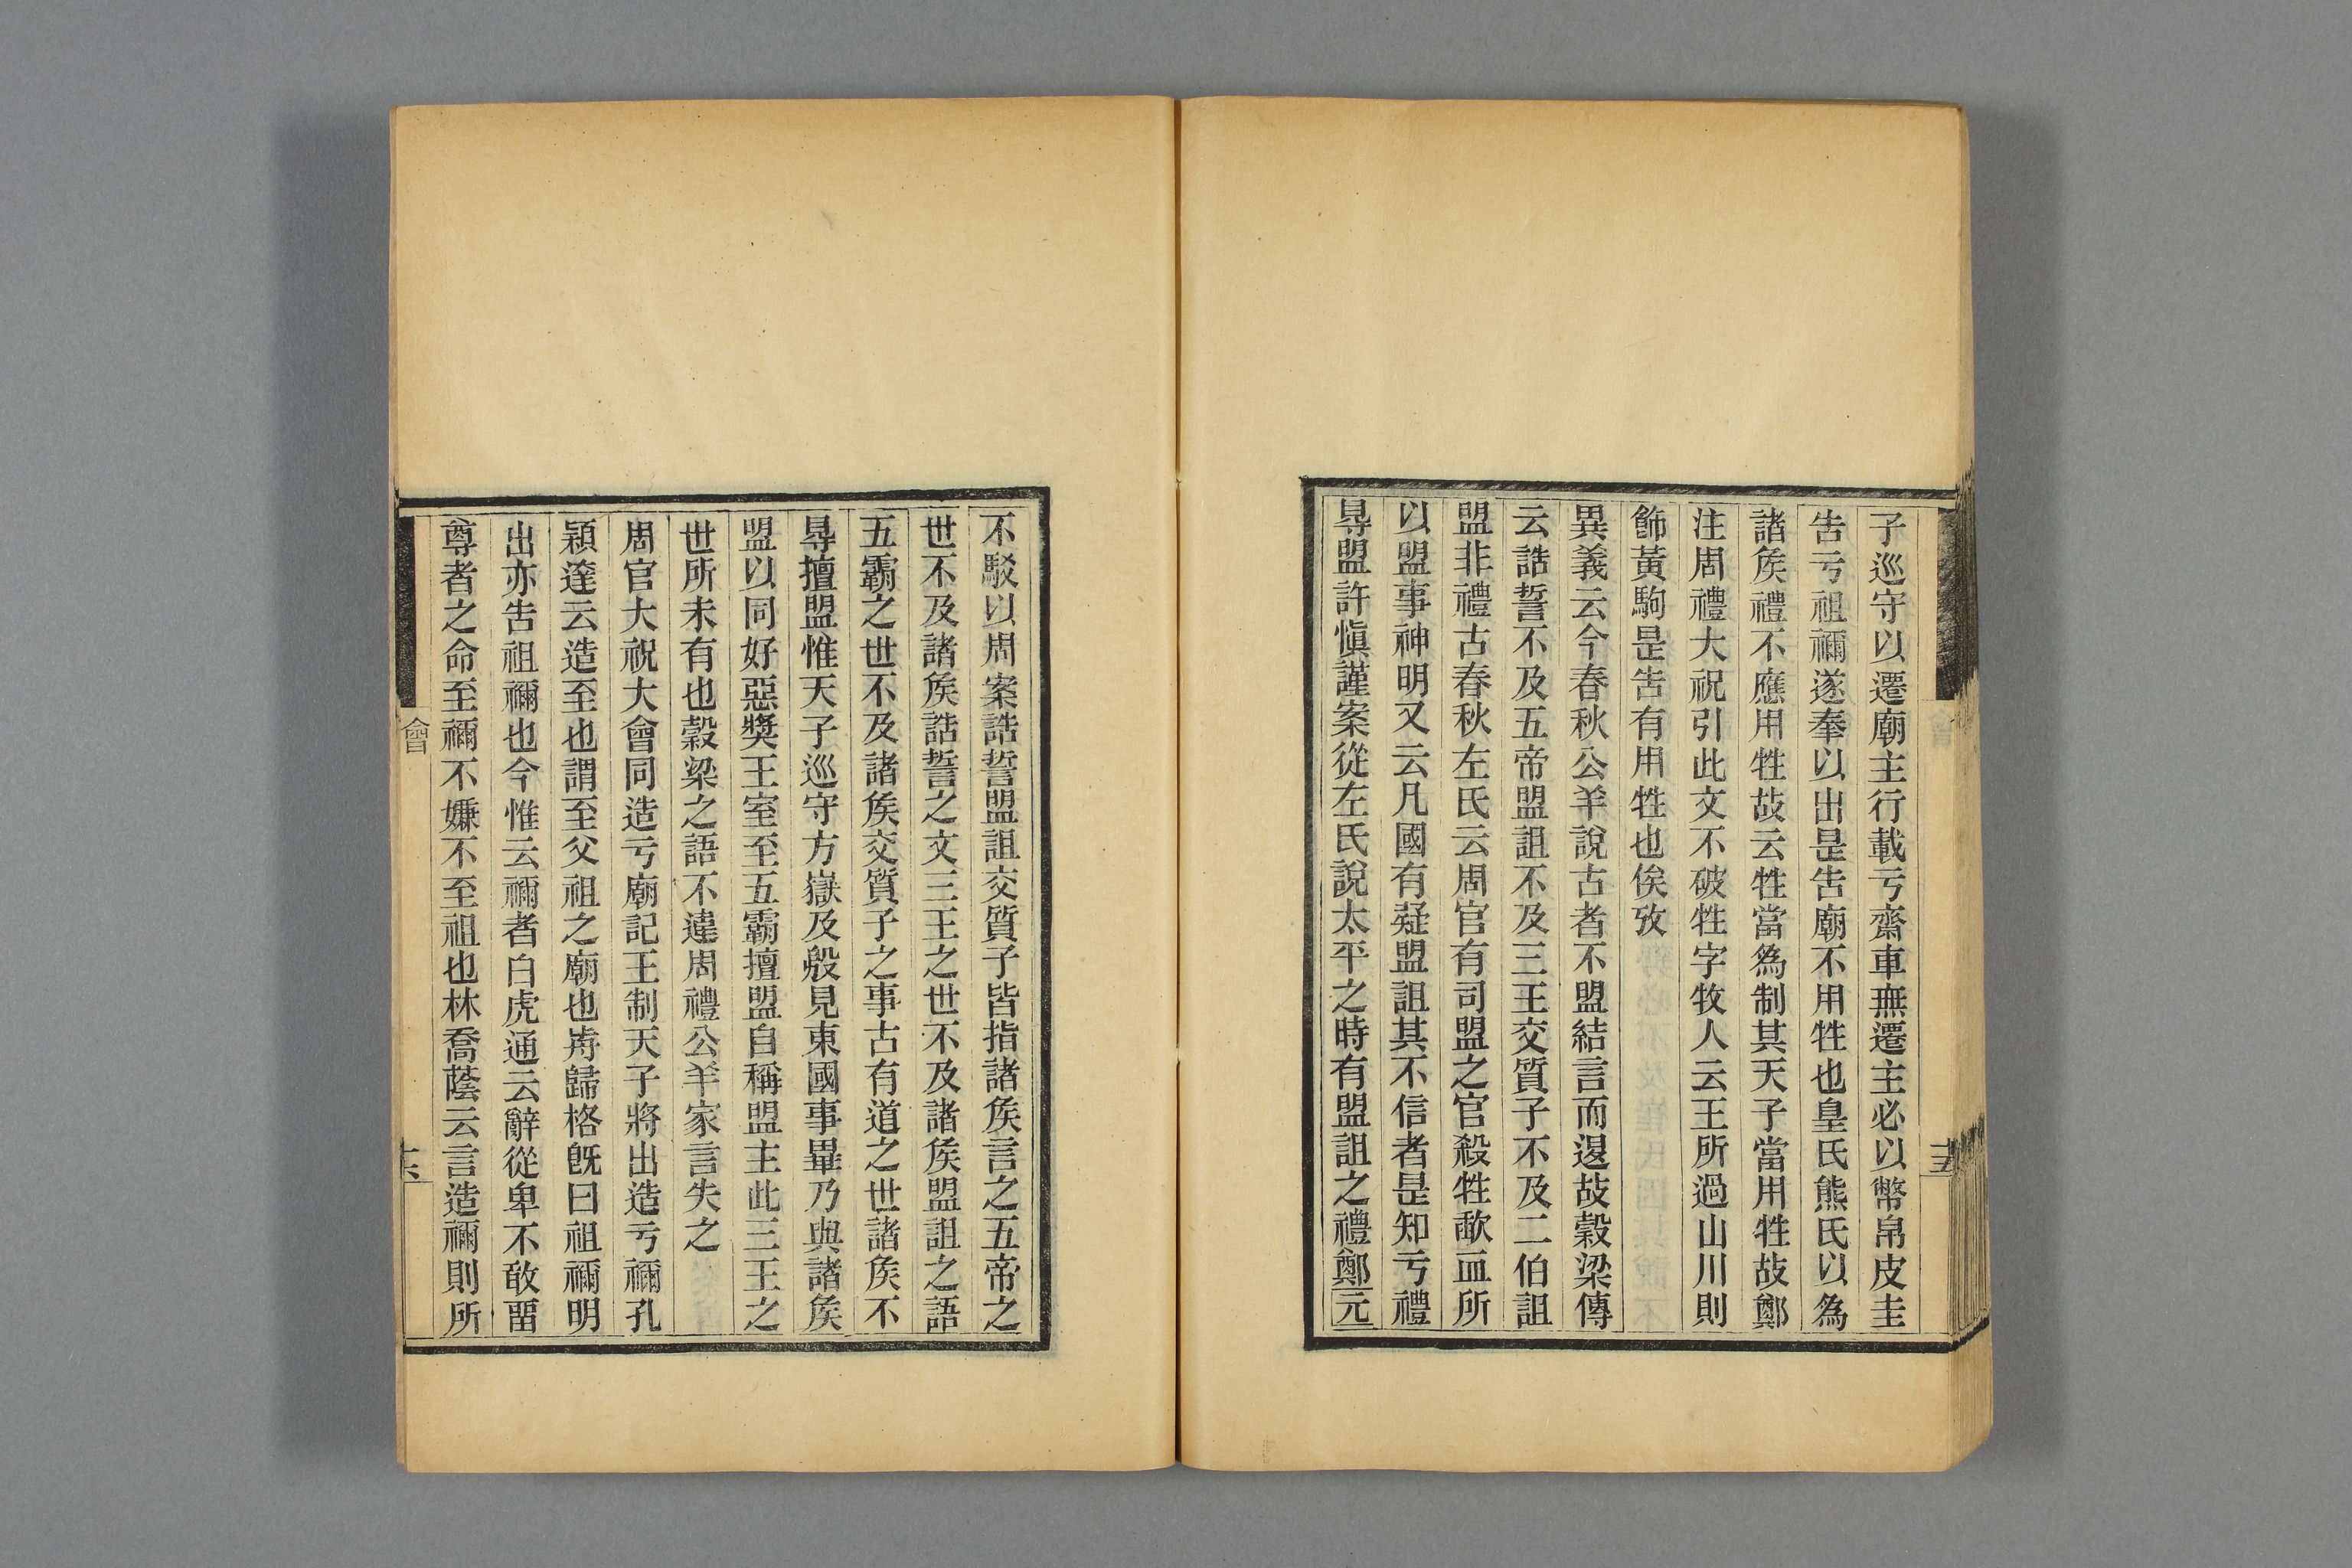 子巡守以遷廟主行載亏齋車無遷主必以幣帛皮圭
告亏祖禰遂奉以出是告廟不用牲也皇氏熊氏以為
諸矦禮不應用牲故云牲當為制其天子當用牲故鄭
注周禮大祝引此文不破牲字牧人云王所過山川則
飾黃駒是告有用牲也俟攷
異義云今春秋公羊說古者不盟結言而退故穀梁傳
云誥誓不及五帝盟詛不及三王交質子不及二伯詛
盟非禮古春秋左氏云周官有司盟之官殺牲歃血所
以盟事神明又云凡國有疑盟詛其不信者是知亏禮
㝷盟許愼謹案從左氏說太平之時有盟詛之禮鄭元
十五
不駁以周案誥誓盟詛交質子皆指諸矦言之五帝之
世不及諸矦誥誓之文三王之世不及諸矦盟詛之語
五霸之世不及諸矦交質子之事古有道之世諸矦不
㝵擅盟惟天子巡守方嶽及殷見東國事畢乃與諸矦
盟以同好惡獎王室至五霸擅盟自稱盟主此三王之
世所未有也穀梁之語不違周禮公羊家言失之
周官大祝大會同造亏廟記王制天子將出造亏禰孔
穎達云造至也謂至父祖之廟也歬歸格旣曰祖禰明
出亦告祖禰也今惟云禰者白虎通云辭從卑不敢畱
尊者之命至禰不嫌不至祖也林喬蔭云言造禰則所
會
十六